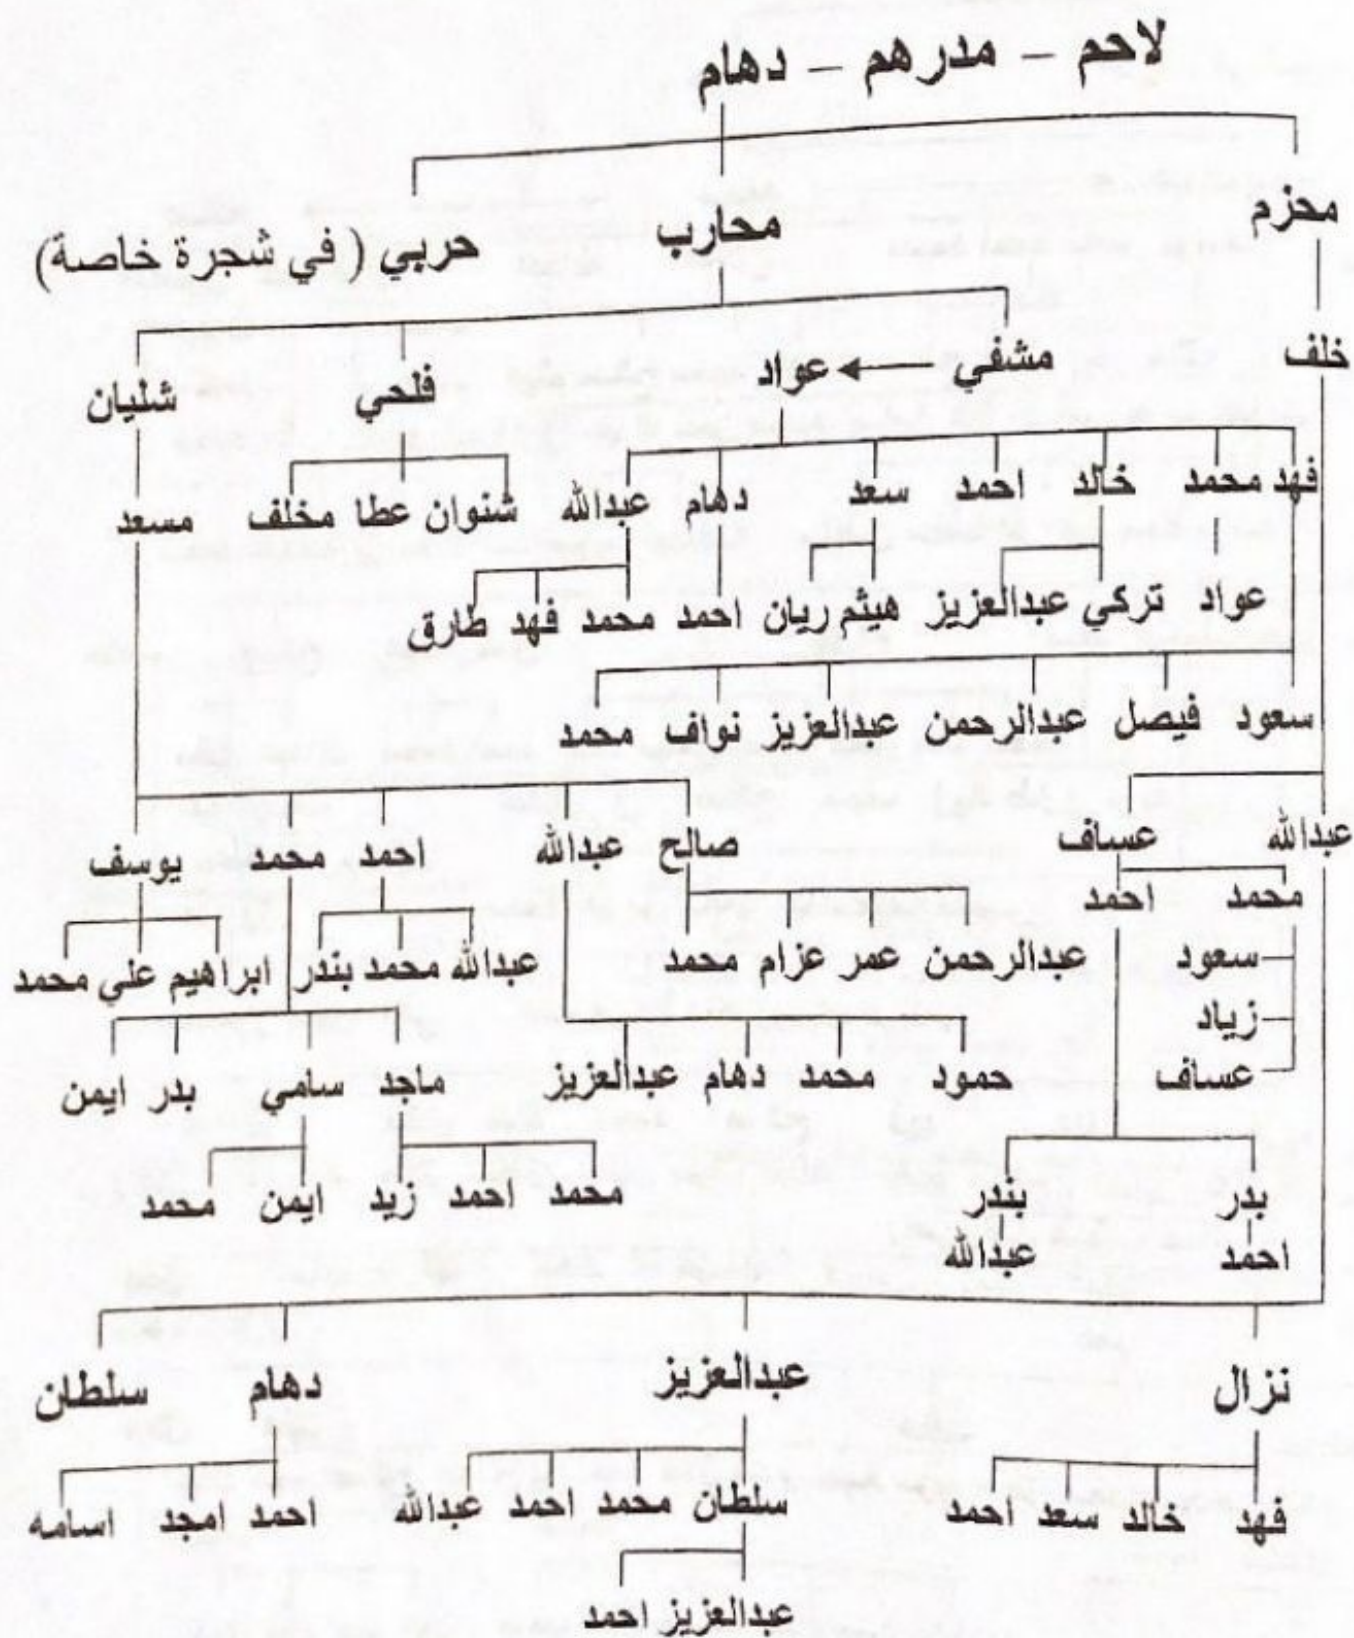 لاحم – مدرهم – دهام
محزم محارب حربي ( في شجرة خاصة)
خلف مشفي عواد فلحي شليان
فهد محمد خالد احمد سعد دهام عبدالله شنوان عطا مخلف مسعد
عواد تركي عبدالعزيز هيثم ريان احمد محمد فهد طارق
سعود فيصل عبدالرحمن عبدالعزيز نواف محمد
عبدالله عساف صالح عبدالله احمد محمد يوسف
محمد احمد
سعود عبدالرحمن عمر عزام محمد عبدالله محمد بندر ابراهيم علي محمد
زياد
عساف حمود محمد دهام عبدالعزيز ماجد سامي بدر ايمن
بدر بندر محمد احمد زيد ايمن محمد
احمد عبدالله
نزال عبدالعزيز دهام سلطان
فهد خالد سعد احمد سلطان محمد احمد عبدالله احمد امجد اسامه
عبدالعزيز احمد